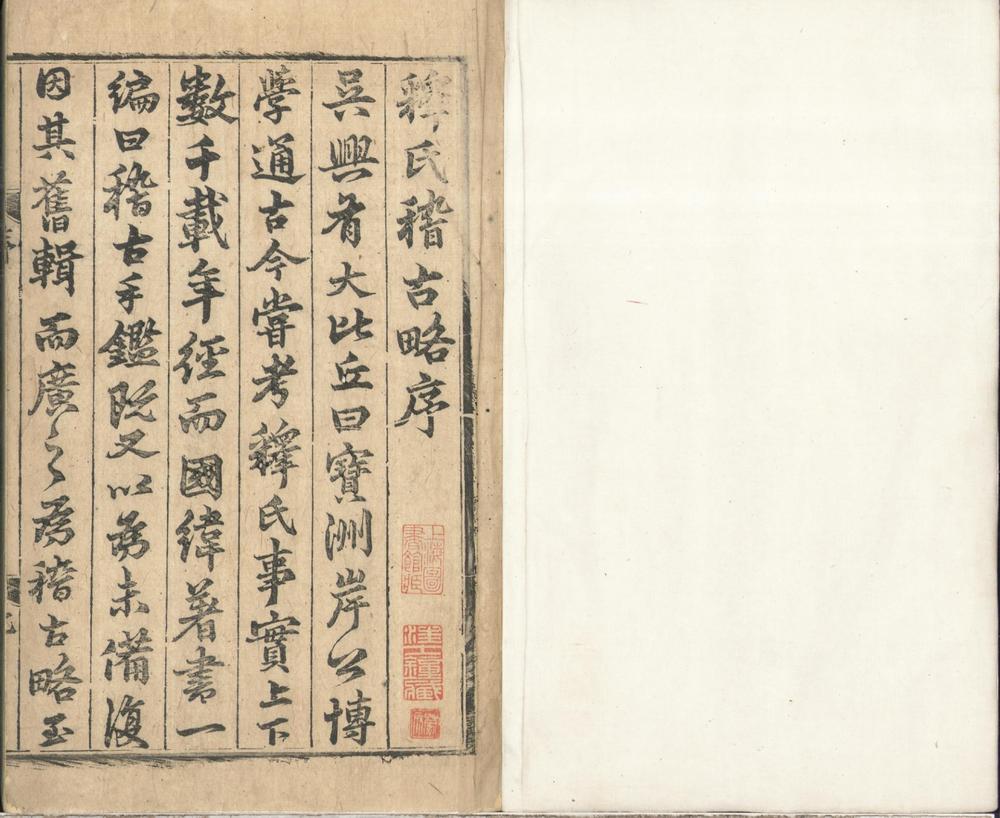 釋氏稽古略序
吳興有大比丘曰寶洲岸公博
學通古今嘗考釋氏事實上下
數千載年經而國緯著書一
編曰稽古手鑑既又以為未備復
因其舊輯而廣之為稽古略玉
上海圖
書館藏